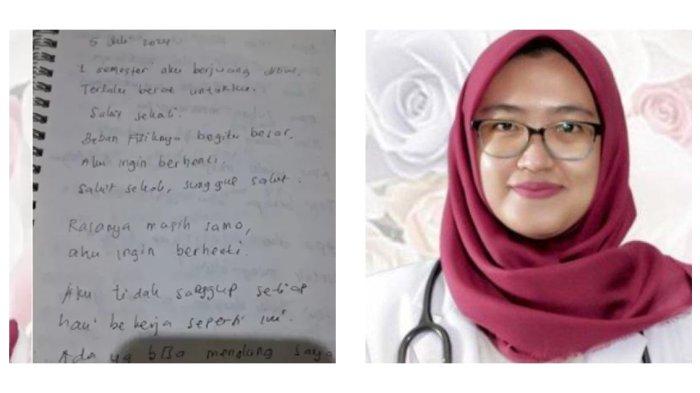 5 Juli 2024
1 semester aku berjuang disini.
Terlalu berat untukku.
Sakit sekali.
Beban Fisiknya begitu besar.
Aku ingin berhenti.
Sakit sekali, sungguh sakit.
Rasanya masih sama,
aku ingin berhenti.
Aku tidak sanggup setiap
hari bekerja seperti ini.
Ada yg bisa menolong saya